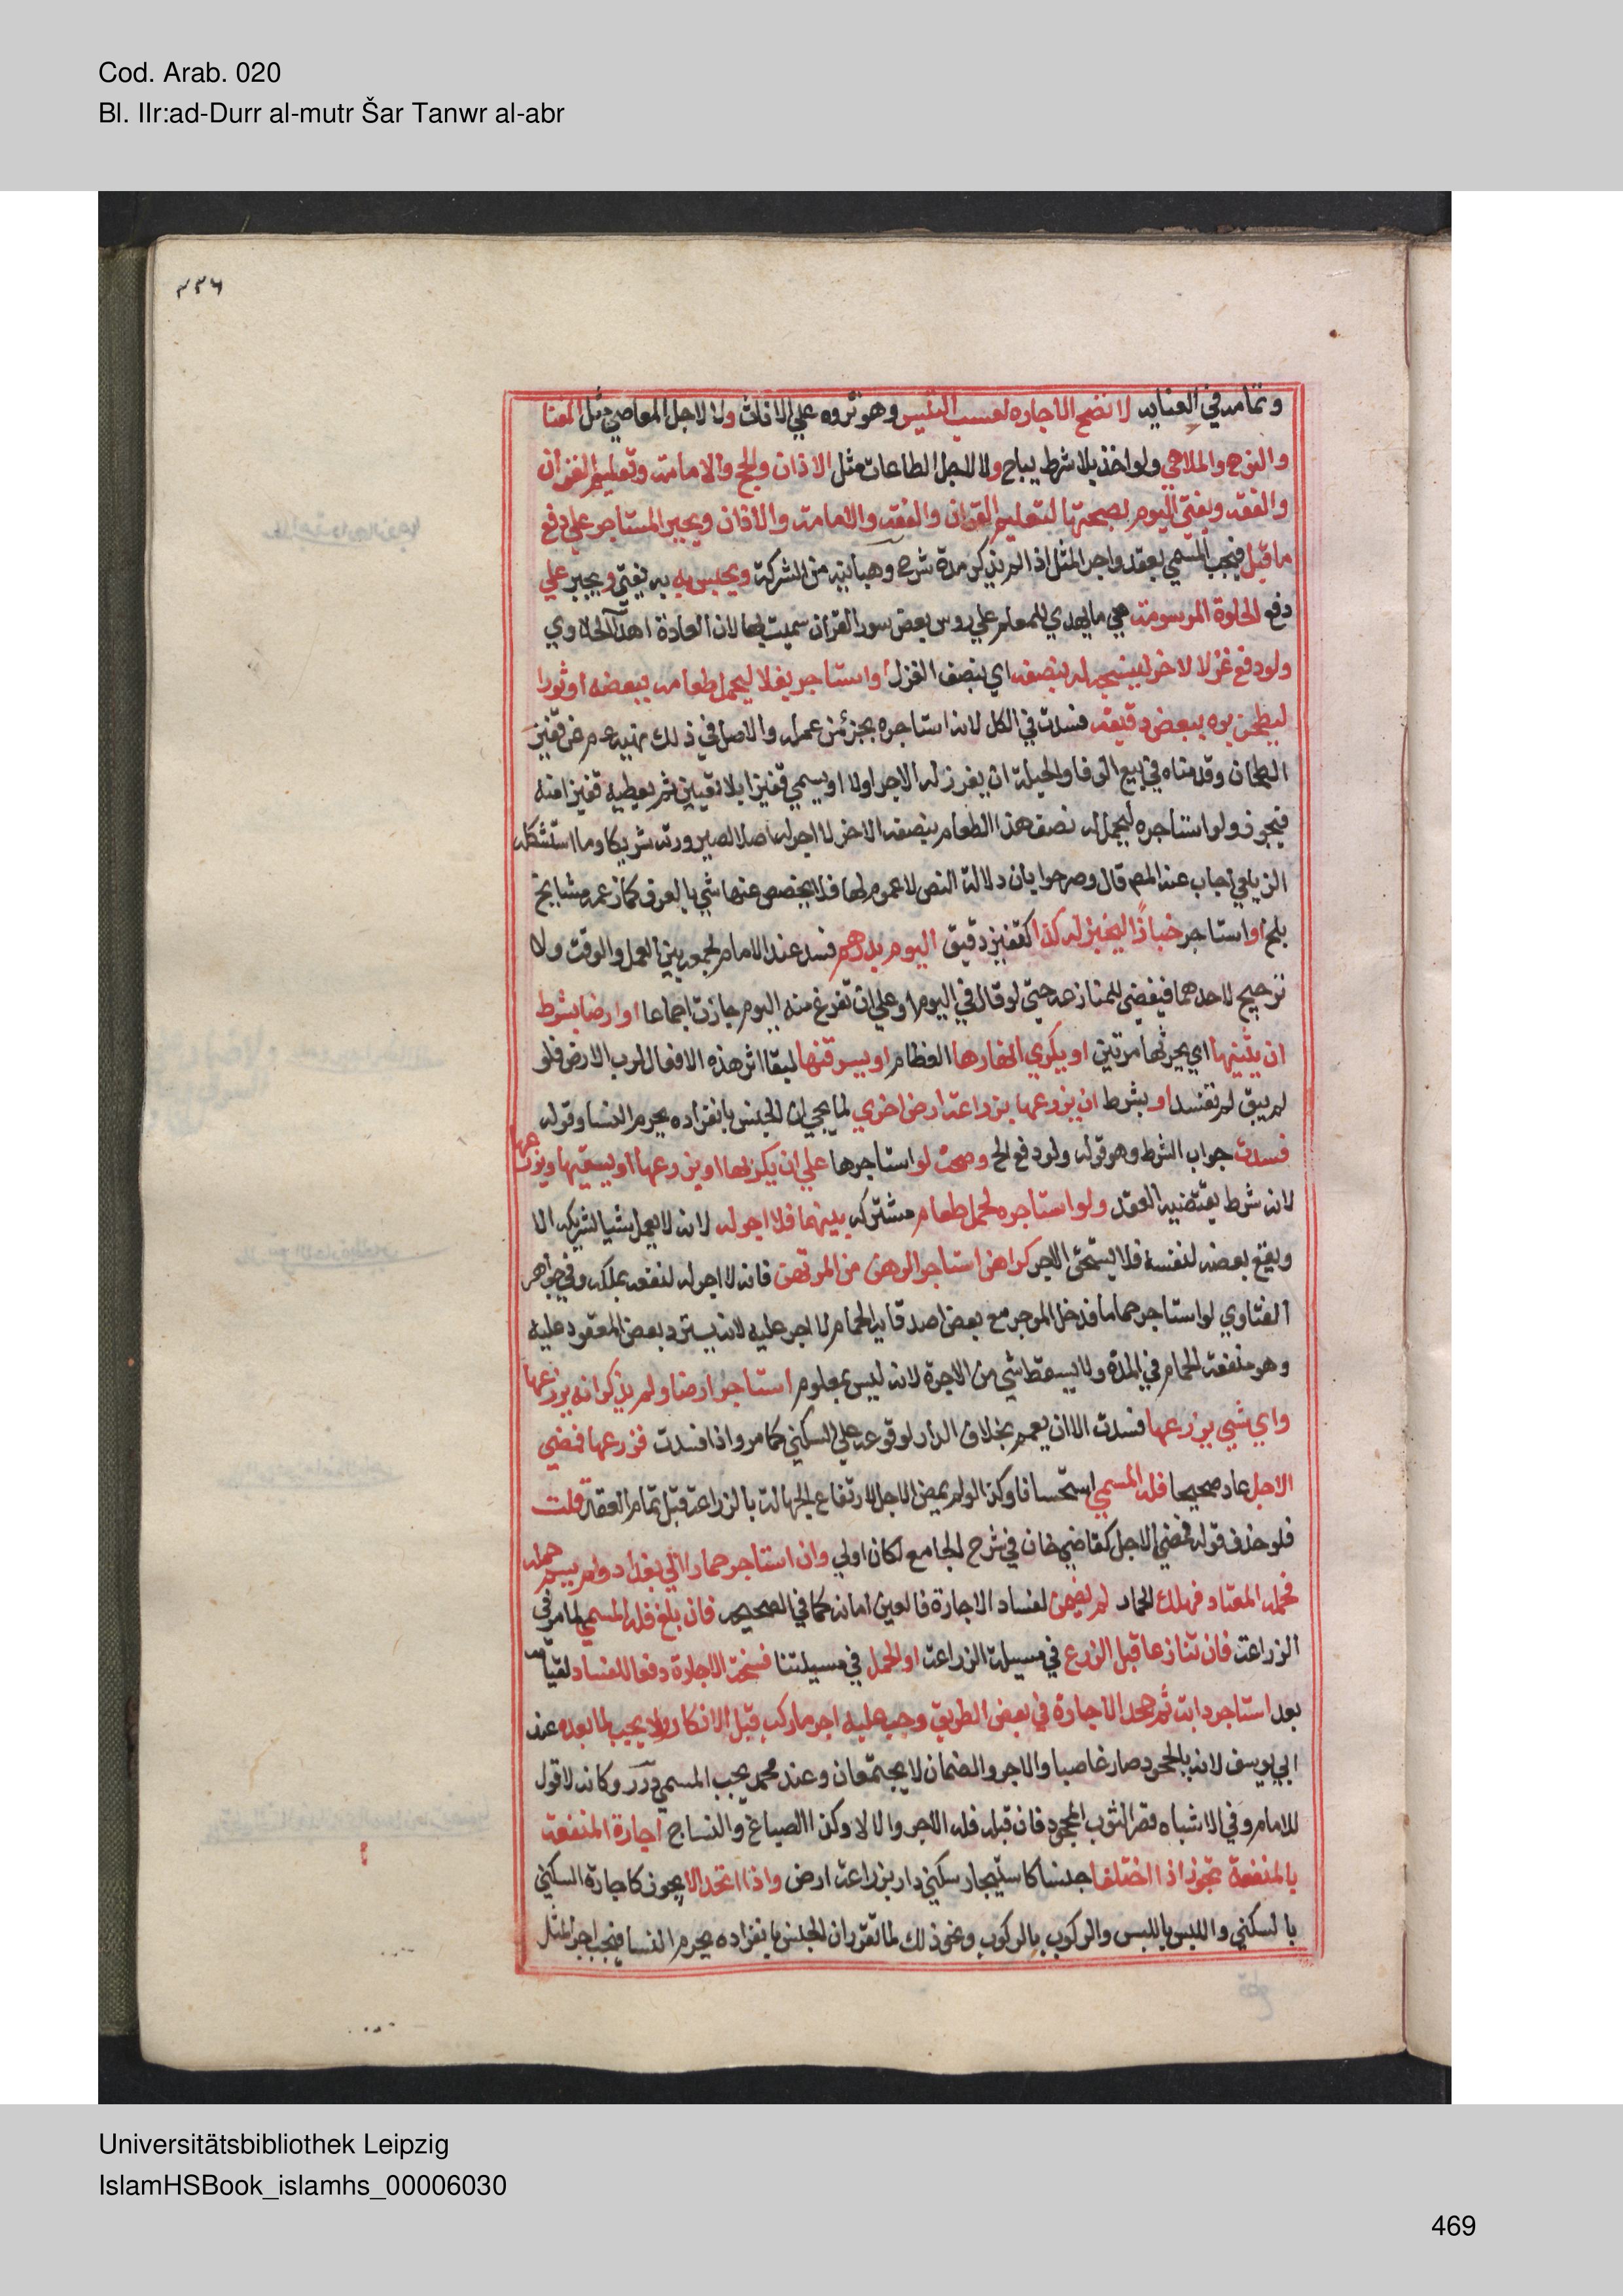 Cod. Arab. 020
Bl. IIr:ad-Durr al-mutr Šar Tanwr al-abr
٣٣٦
وتمامه في العنايه لا تصح الاجاره لعسب التيس وهو نزوه علي الاناث ولا لاجل المعاصي مثل الغنا
والنوح والملاهي ولو اخذ بلا شرط يباح ولا لاجل الطاعات مثل الاذان والحج والامامة وتعليم القران
والفقه ويفتي اليوم بصحتها لتعليم القران والفقه والامامة والاذان ويجبر المستاجر علي دفع
ما قبل فيجب المسمي بعقد واجر المثل اذا لم يذكر مدة شرح وهبانيه من الشركة ويحبس به به يفتي ويجبر علي
دفع الحلوة المرسومة هي ما يهدي للمعلم علي روس بعض سور القران سميت بها لان العادة اهدآ الحلاوي
ولو دفع غزلا لاخر لينسجه له بنصفه اي بنصف الغزل او استاجر بغلا ليحمل طعامه ببعضه او ثورا
ليطحن بره ببعض دقيقه فسدت في الكل لانه استاجره بجزء من عمله والاصل في ذلك نهيه عم عن قفيز
الطحان وقدمناه في بيع الوفا والحيلة ان يفرز له الاجر اولا او يسمي قفيزا بلا تعيين ثم يعطيه قفيزا منه
فيجوز ولو استاجره ليحمل له نصف هذا الطعام بنصفه الاخر لا اجر له اصلا لصيرورته شريكا وما استشكله
الزيلعي اجاب عنه المص قال وصرحوا بان دلالة النص لا عموم لها فلا يخصص عنها شي بالعرف كما زعمه مشايخ
بلخ او استاجر خبازا ليخبز له كذا كقفيز دقيق اليوم بدرهم فسد عند الامام لجمعه بين العمل والوقت ولا
ترجيح لاحدهما فيفضي للمنازعه حتي لو قال في اليوم او علي ان تفرغ منه اليوم جازت اجماعا او ارضا بشرط
ان يثنيها اي يحرثها مرتين او يكري انهارها العظام او يسرقنها لبقا اثر هذه الافعال لرب الارض فلو
لم يبق لم تفسد او بشرط ان يزرعها بزراعة ارض اخري لما يجي ان الجنس بانفراده يحرم النسا وقوله
فسدت جواب الشرط وهو قوله ولو دفع الخ وصحت لو استاجرها علي ان يكربها او يزرعها او يسقيها ويزرعها
لانه شرط يقتضيه العقد ولو استاجره لحمل طعام مشترك بينهما فلا اجر له لانه لا يعمل شيا لشريكه الا
ويقع بعضه لنفسه فلا يستحق الاجر كراهن استاجر الرهن من المرتهن فانه لا اجر له لنفعه بملكه وفي جواهر
الفتاوي لو استاجر حماما فدخل الموجر مع بعض اصدقايه الحمام لا اجر عليه لانه يسترد بعض المعقود عليه
وهو منفعة الحمام في المدة ولا يسقط شي من الاجرة لانه ليس بمعلوم استاجر ارضا ولم يذكر انه يزرعها
واي شي يزرعها فسدت الا ان يعمم بخلاف الدار لوقوعه علي السكني كما مر واذا فسدت فزرعها فمضي
الاجل عاد صحيحا فله المسمي استحسانا وكذا لو لم يمض الاجل لارتفاع الجهالة بالزراعة قبل تمام العقد قلت
فلو حذف قوله فمضي الاجل كقاضي خان في شرح الجامع لكان اولي وان استاجر حمارا الي بغداد ولم يسم حمله
فحمله المعتاد فهلك الحمار لم يضمن لفساد الاجارة فالعين امانه كما في الصحيحه فان بلغ فله المسمي لما مر في
الزراعة فان تنازعا قبل الزرع في مسيلة الزراعة او الحمل في مسيلتنا فسخت الاجارة دفعا للفساد لقيامه
بعد استاجر دابة ثم جحد الاجارة في بعض الطريق وجب عليه اجر ما ركب قبل الانكار ولا يجب لما بعده عند
ابي يوسف لانه بالجحود صار غاصبا والاجر والضمان لا يجتمعان وعند محمد يجب المسمي درر وكانه لا قول
للامام وفي الاشباه قصر الثوب المجحود فان قبله فله الاجر والا لا وكذا الصباغ والنساج اجارة المنفعة
بالمنفعة تجوز اذا اختلفا جنسا كاستيجار سكني دار بزراعة ارض واذا اتحدا لا يجوز كاجارة السكني
بالسكني واللبس باللبس والركوب بالركوب ونحو ذلك لما تقرر ان الجنس بانفراده يحرم النسا فيجب اجر المثل
Universitätsbibliothek Leipzig
IslamHSBook_islamhs_00006030
469